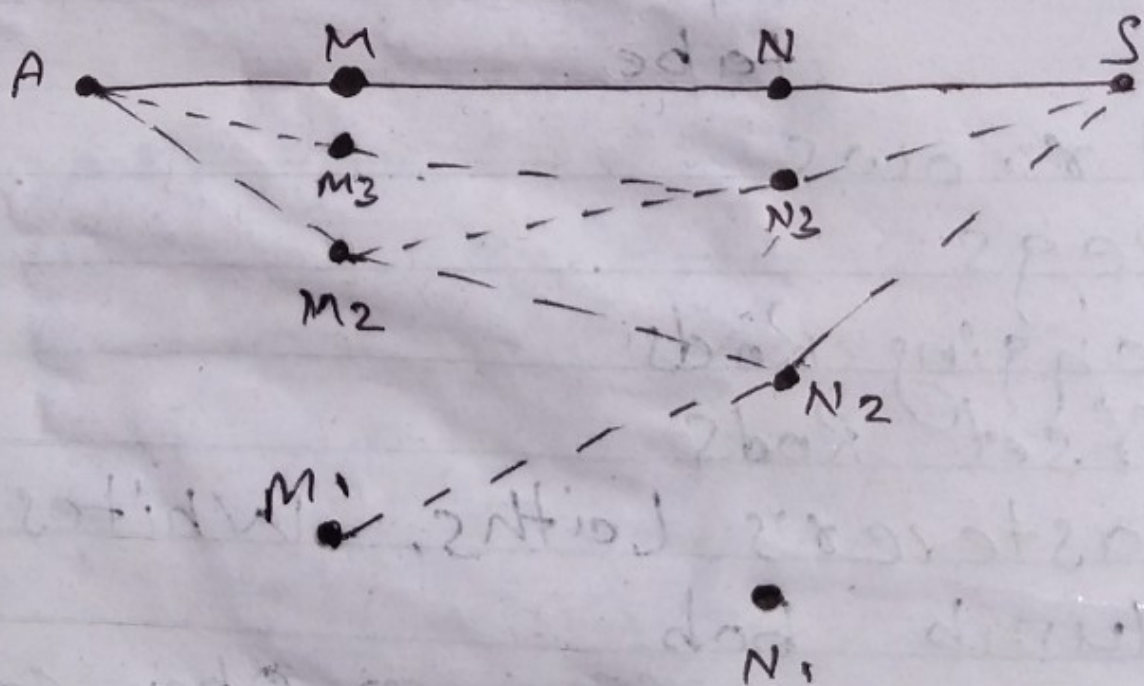 A M N S
M3 N3
M2
N2
M1
N1